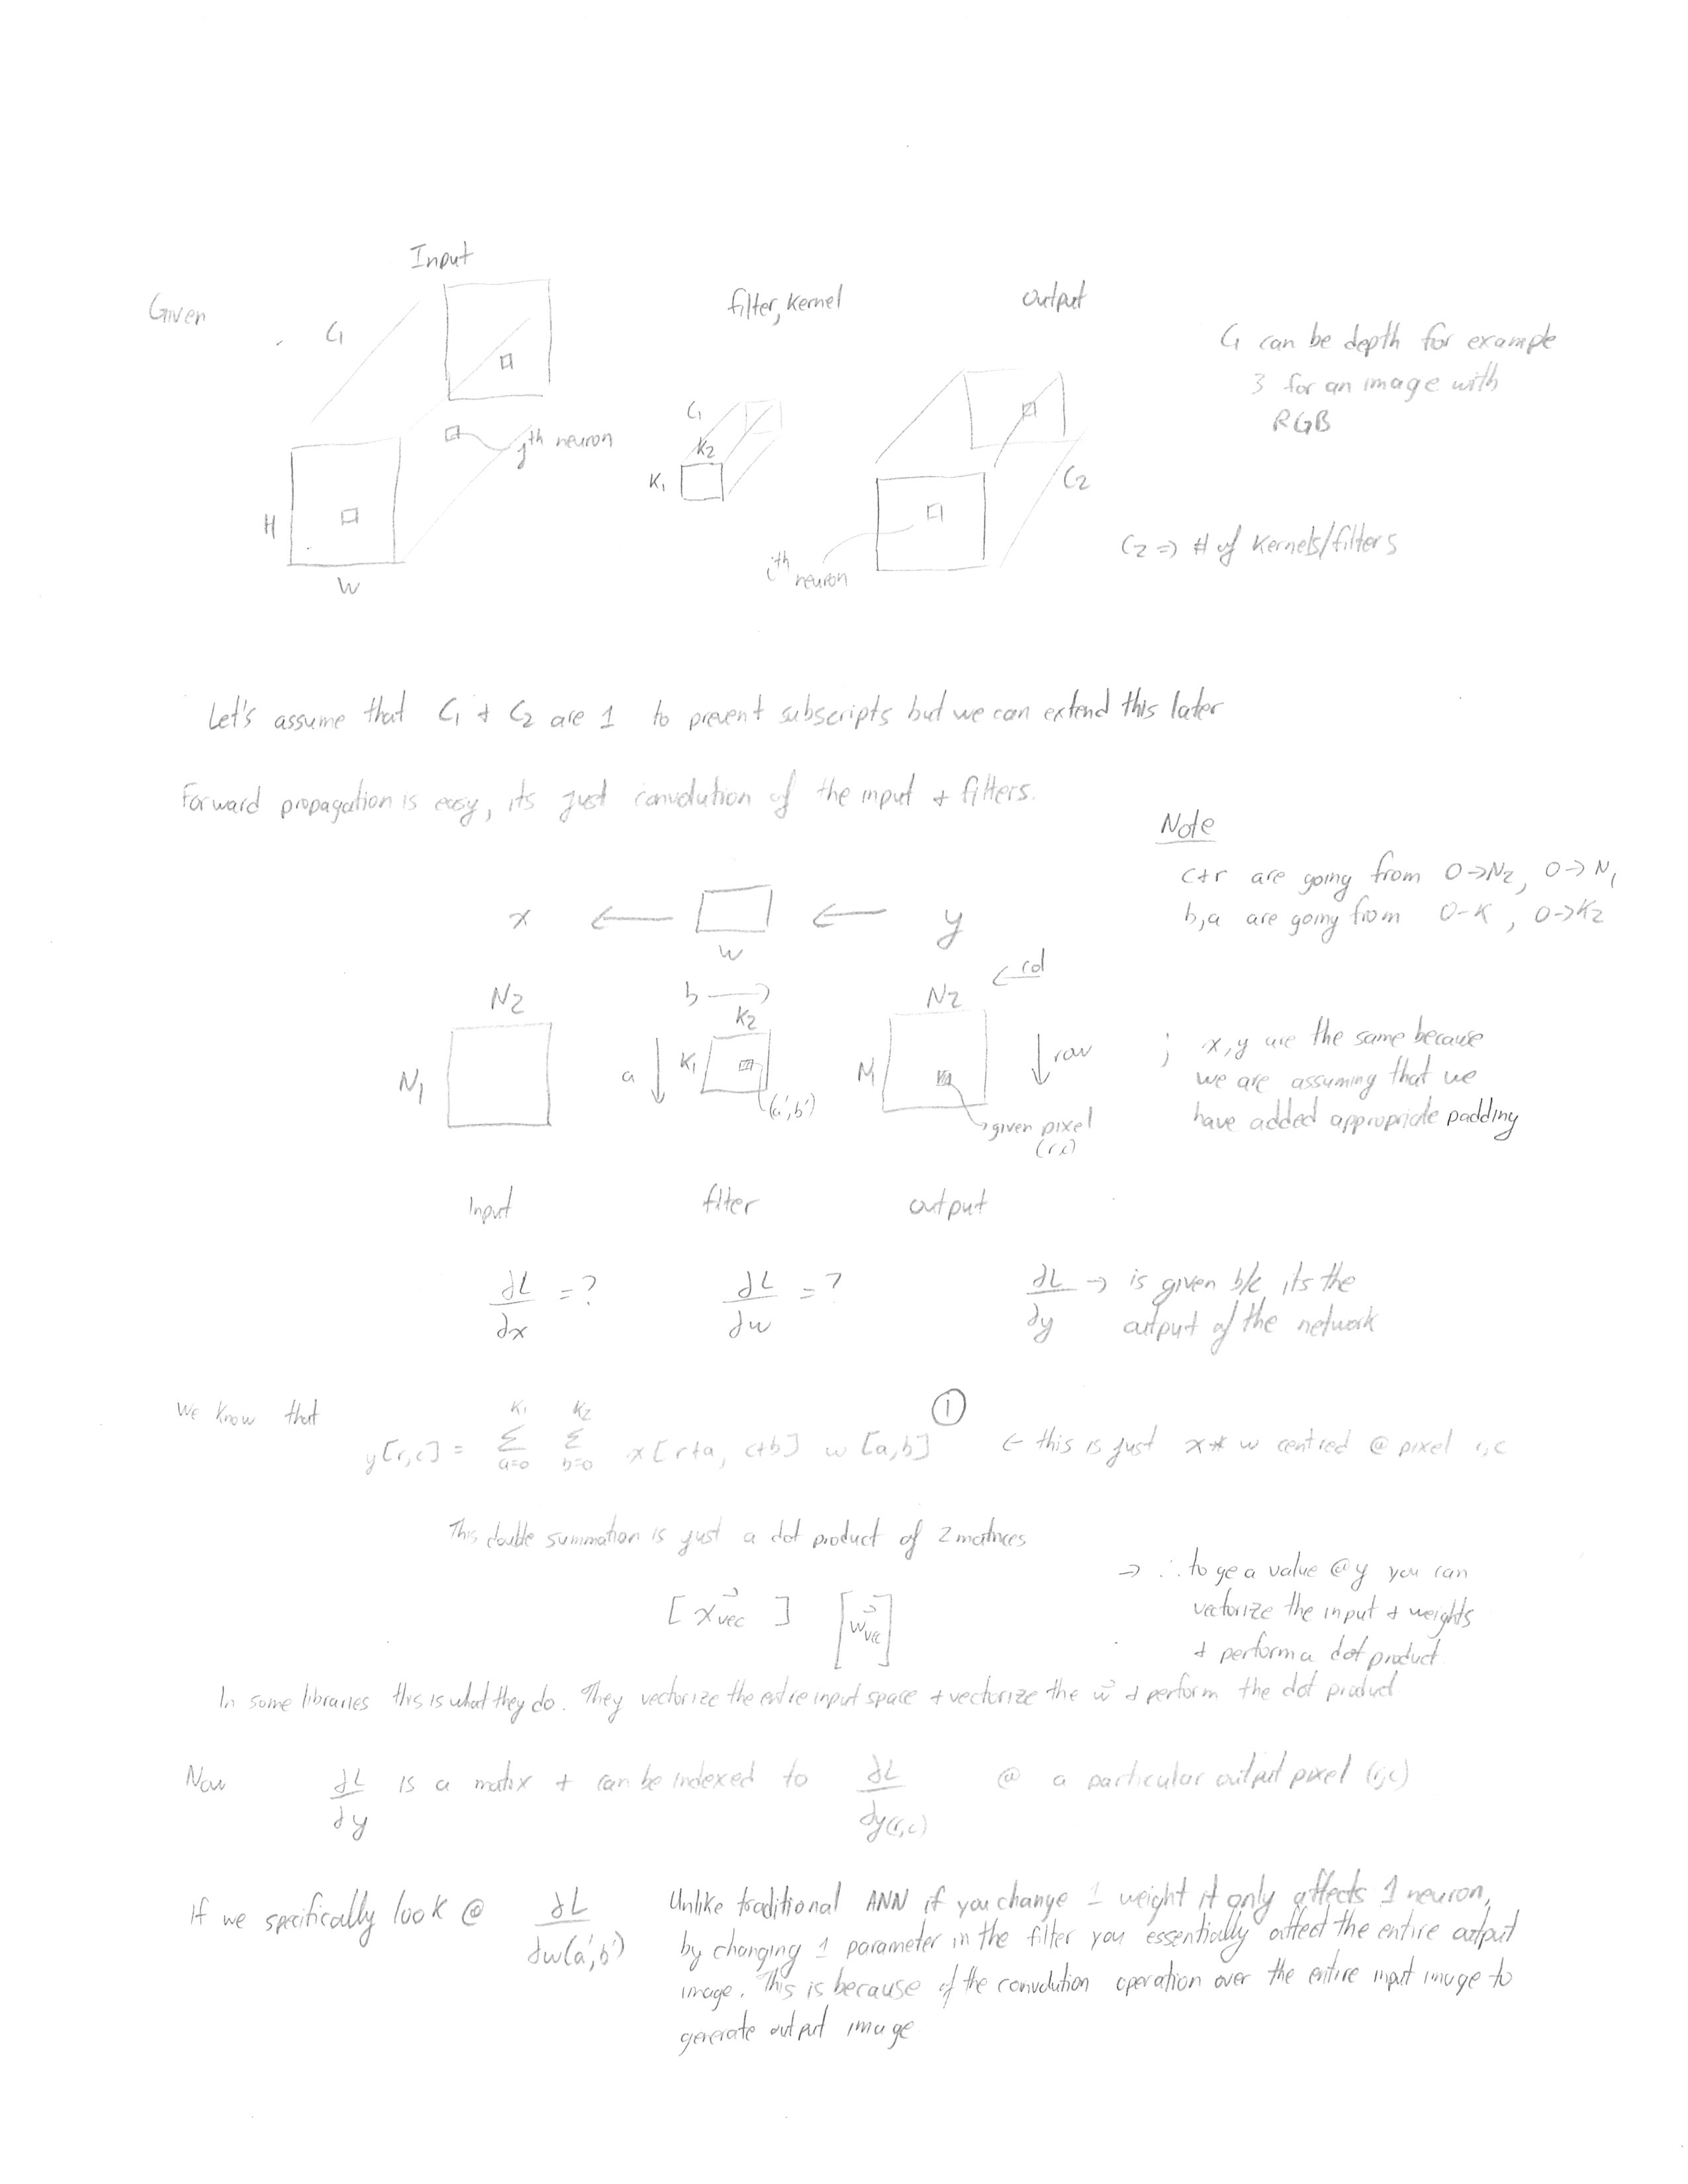 Input
Given
C1
filter, kernel
output
C1 can be depth for example
3 for an image with
RGB
jth neuron
C1
K2
K1
H
W
C2
ith neuron
C2 => # of kernels/filters
Let's assume that C1 + C2 are 1 to prevent subscripts but we can extend this later
Forward propagation is easy, its just convolution of the input + filters.
Note
c+r are going from 0->N2, 0->N1
b,a are going from 0-K, 0->K2
x ← w ← y
← col
N2
b →
K2
N2
N1
a ↓
K1
(a',b')
N1
↓ row
given pixel
(r,c)
; x,y are the same because
we are assuming that we
have added appropriate padding
Input filter output
∂L/∂x = ?
∂L/∂w = ?
∂L/∂y → is given b/c its the
output of the network
We know that y[r,c] = Σ(a=0 to K1) Σ(b=0 to K2) x[r+a, c+b] w[a,b] ① ← this is just x * w centred @ pixel r,c
This double summation is just a dot product of 2 matrices
[x⃗vec] [w⃗vec]
→ ∴ to ge a value @ y you can
vectorize the input + weights
+ perform a dot product
In some libraries this is what they do. They vectorize the entire input space + vectorize the w⃗ + perform the dot product
Now ∂L/∂y is a matrix + can be indexed to ∂L/∂y(r,c) @ a particular output pixel (r,c)
If we specifically look @ ∂L/∂w(a',b')
Unlike traditional ANN if you change 1 weight it only affects 1 neuron,
by changing 1 parameter in the filter you essentially affect the entire output
image. This is because of the convolution operation over the entire input image to
generate output image